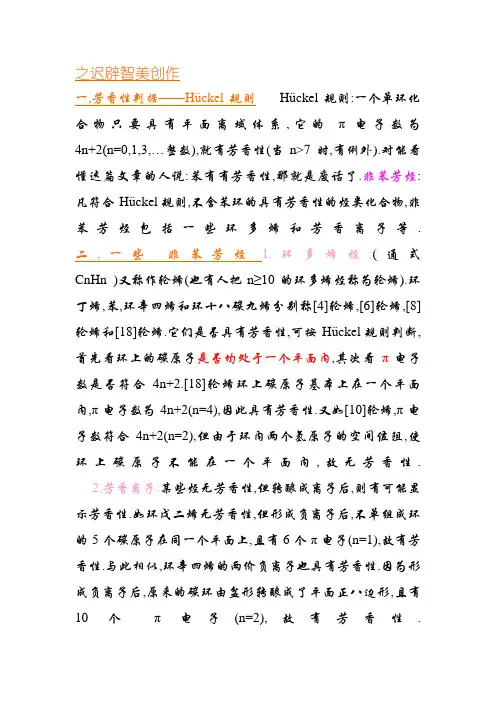 之迟辟智美创作
一,芳香性判据——Hückel规则 Hückel规则:一个单环化
合物只要具有平面离域体系,它的π电子数为
4n+2(n=0,1,3,…整数),就有芳香性(当n>7时,有例外).对能看
懂这篇文章的人说:苯有有芳香性,那就是废话了.非苯芳烃:
凡符合Hückel规则,不含苯环的具有芳香性的烃类化合物,非
苯芳烃包括一些环多烯和芳香离子等.
二,一些非苯芳烃1.环多烯烃(通式
CnHn )又称作轮烯(也有人把n≥10的环多烯烃称为轮烯).环
丁烯,苯,环辛四烯和环十八碳九烯分别称[4]轮烯,[6]轮烯,[8]
轮烯和[18]轮烯.它们是否具有芳香性,可按Hückel规则判断,
首先看环上的碳原子是否均处于一个平面内,其次看π电子
数是否符合4n+2.[18]轮烯环上碳原子基本上在一个平面
内,π电子数为4n+2(n=4),因此具有芳香性.又如[10]轮烯,π电
子数符合4n+2(n=2),但由于环内两个氢原子的空间位阻,使
环上碳原子不能在一个平面内,故无芳香性.
2,芳香离子:某些烃无芳香性,但转酿成离子后,则有可能显
示芳香性.如环戊二烯无芳香性,但形成负离子后,不单组成环
的5个碳原子在同一个平面上,且有6个π电子(n=1),故有芳
香性.与此相似,环辛四烯的两价负离子也具有芳香性.因为形
成负离子后,原来的碳环由盆形转酿成了平面正八边形,且有
10个π电子(n=2),故有芳香性.